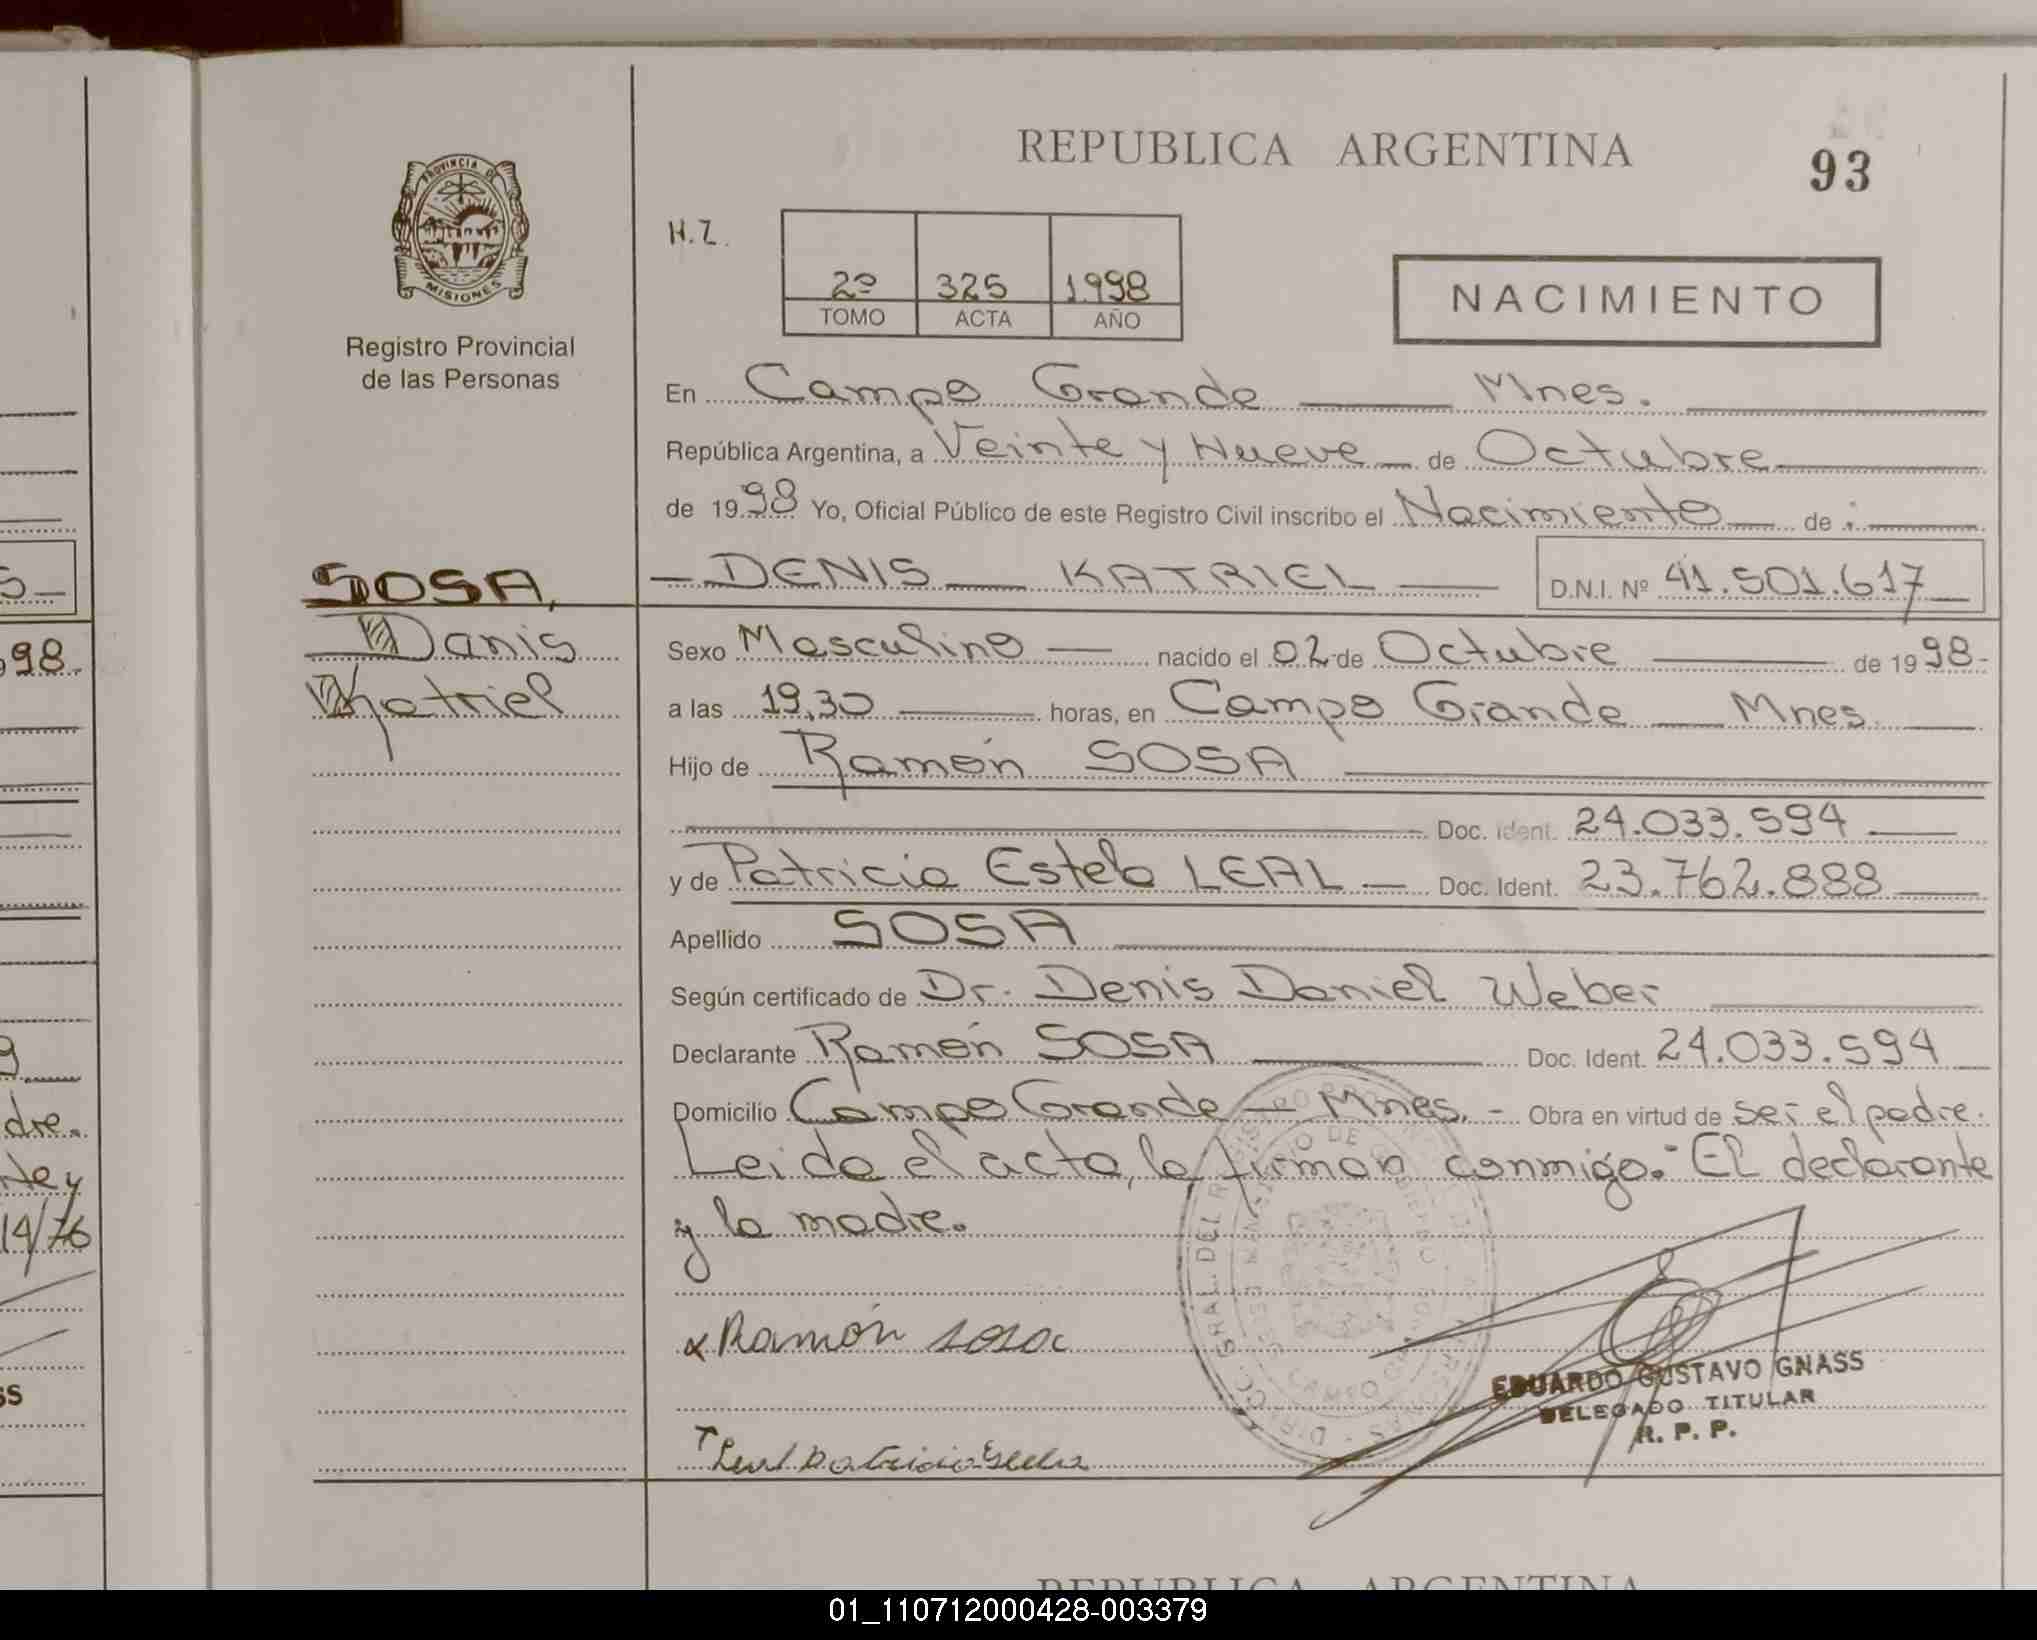 REPUBLICA ARGENTINA
93
PROVINCIA DE
MISIONES
Registro Provincial
de las Personas
H.Z.
2º 325 1998
TOMO ACTA AÑO
NACIMIENTO
En Campo Grande Mnes.
República Argentina, a Veinte y Nueve de Octubre
de 1998 Yo, Oficial Público de este Registro Civil inscribo el Nacimiento de :
DENIS KATRIEL D.N.I. Nº 41.501.617
SOSA,
Danis
Khatriel
Sexo Masculino nacido el 02 de Octubre de 1998-
a las 19,30 horas, en Campo Grande Mnes.
Hijo de Ramón SOSA
Doc. Ident. 24.033.594
y de Patricia Estela LEAL Doc. Ident. 23.762.888
Apellido SOSA
Según certificado de Dr. Denis Daniel Weber
Declarante Ramón SOSA Doc. Ident. 24.033.594
Domicilio Campo Grande - Mnes. - Obra en virtud de ser el padre.
Leida el acta, la firman conmigo.- El declarante
y la madre.
Ramón sosa
Leal Patricia Estela
EDUARDO GUSTAVO GNASS
DELEGADO TITULAR
R. P. P.
98
dre.
te y
14/76
SS
REPUBLICA ARGENTINA
01_110712000428-003379